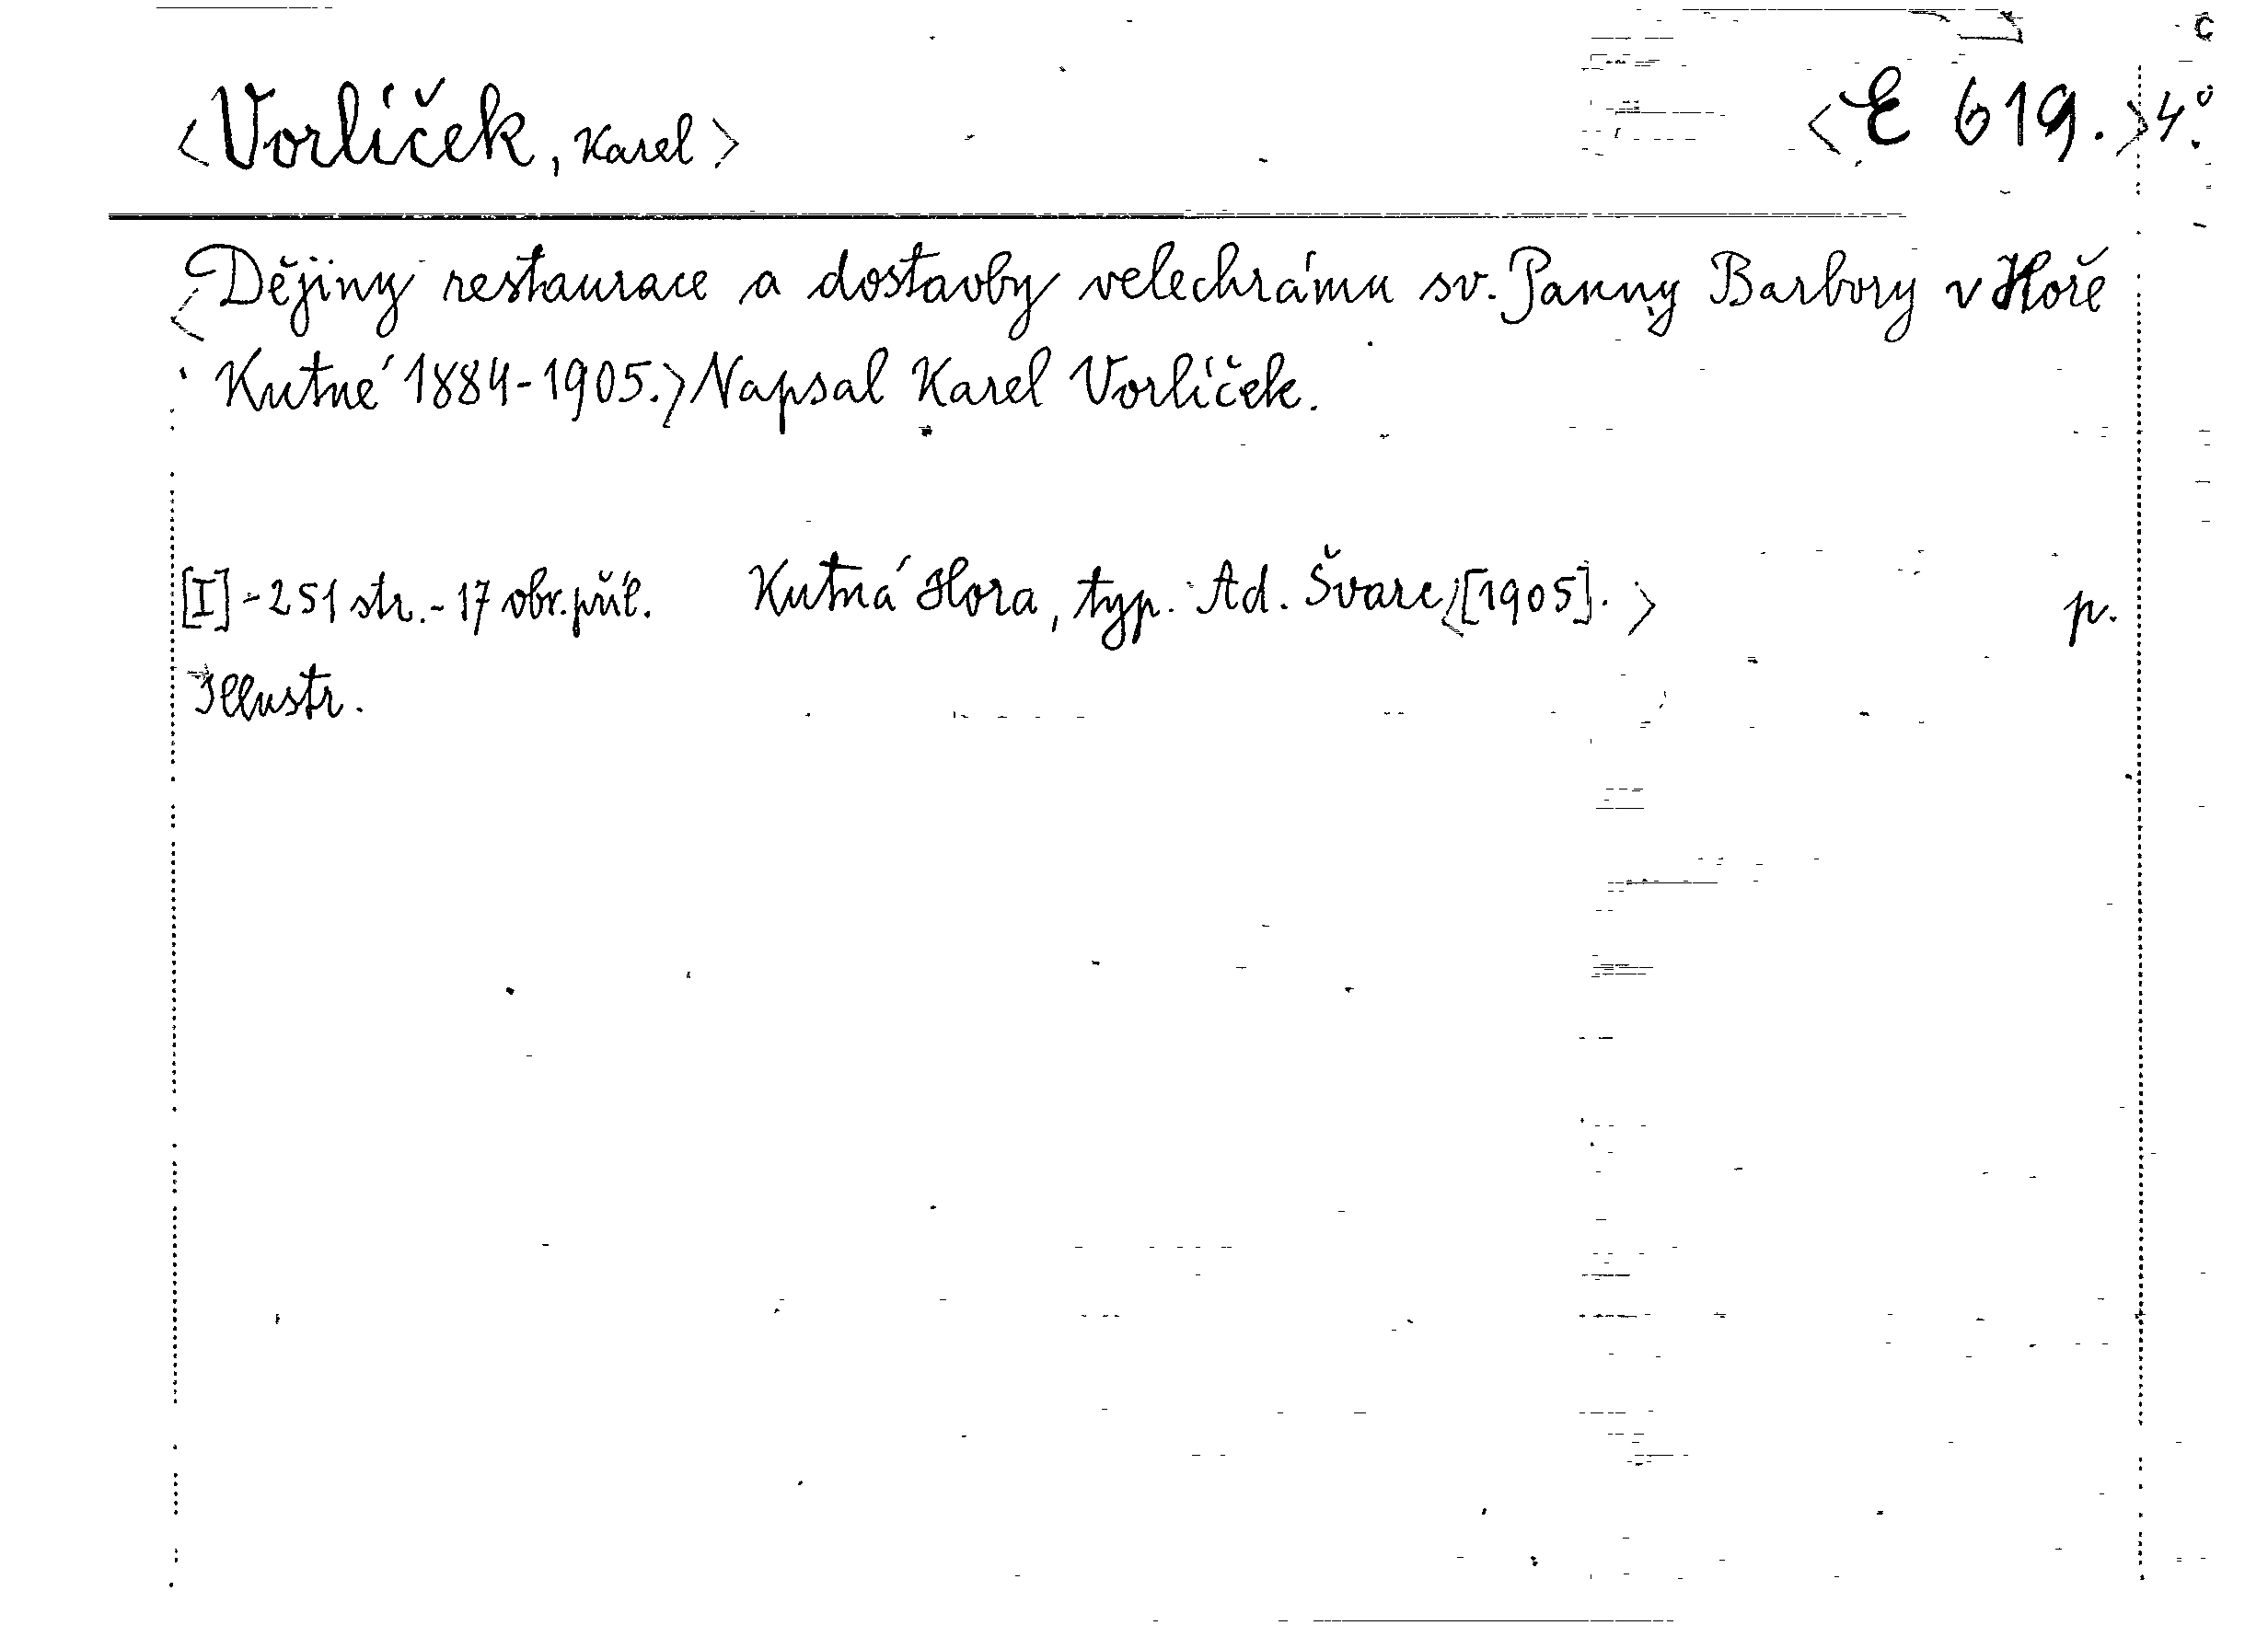 C
<Vorlíček, Karel> <E 619.>4.°
<Dějiny restaurace a dostavby velechrámu sv. Panny Barbory v Hoře
Kutné 1884-1905.> Napsal Karel Vorlíček.
[I]-251 str.-17 obr. příl. Kutná Hora, typ. Ad. Švarc <[1905].> p.
Illustr.